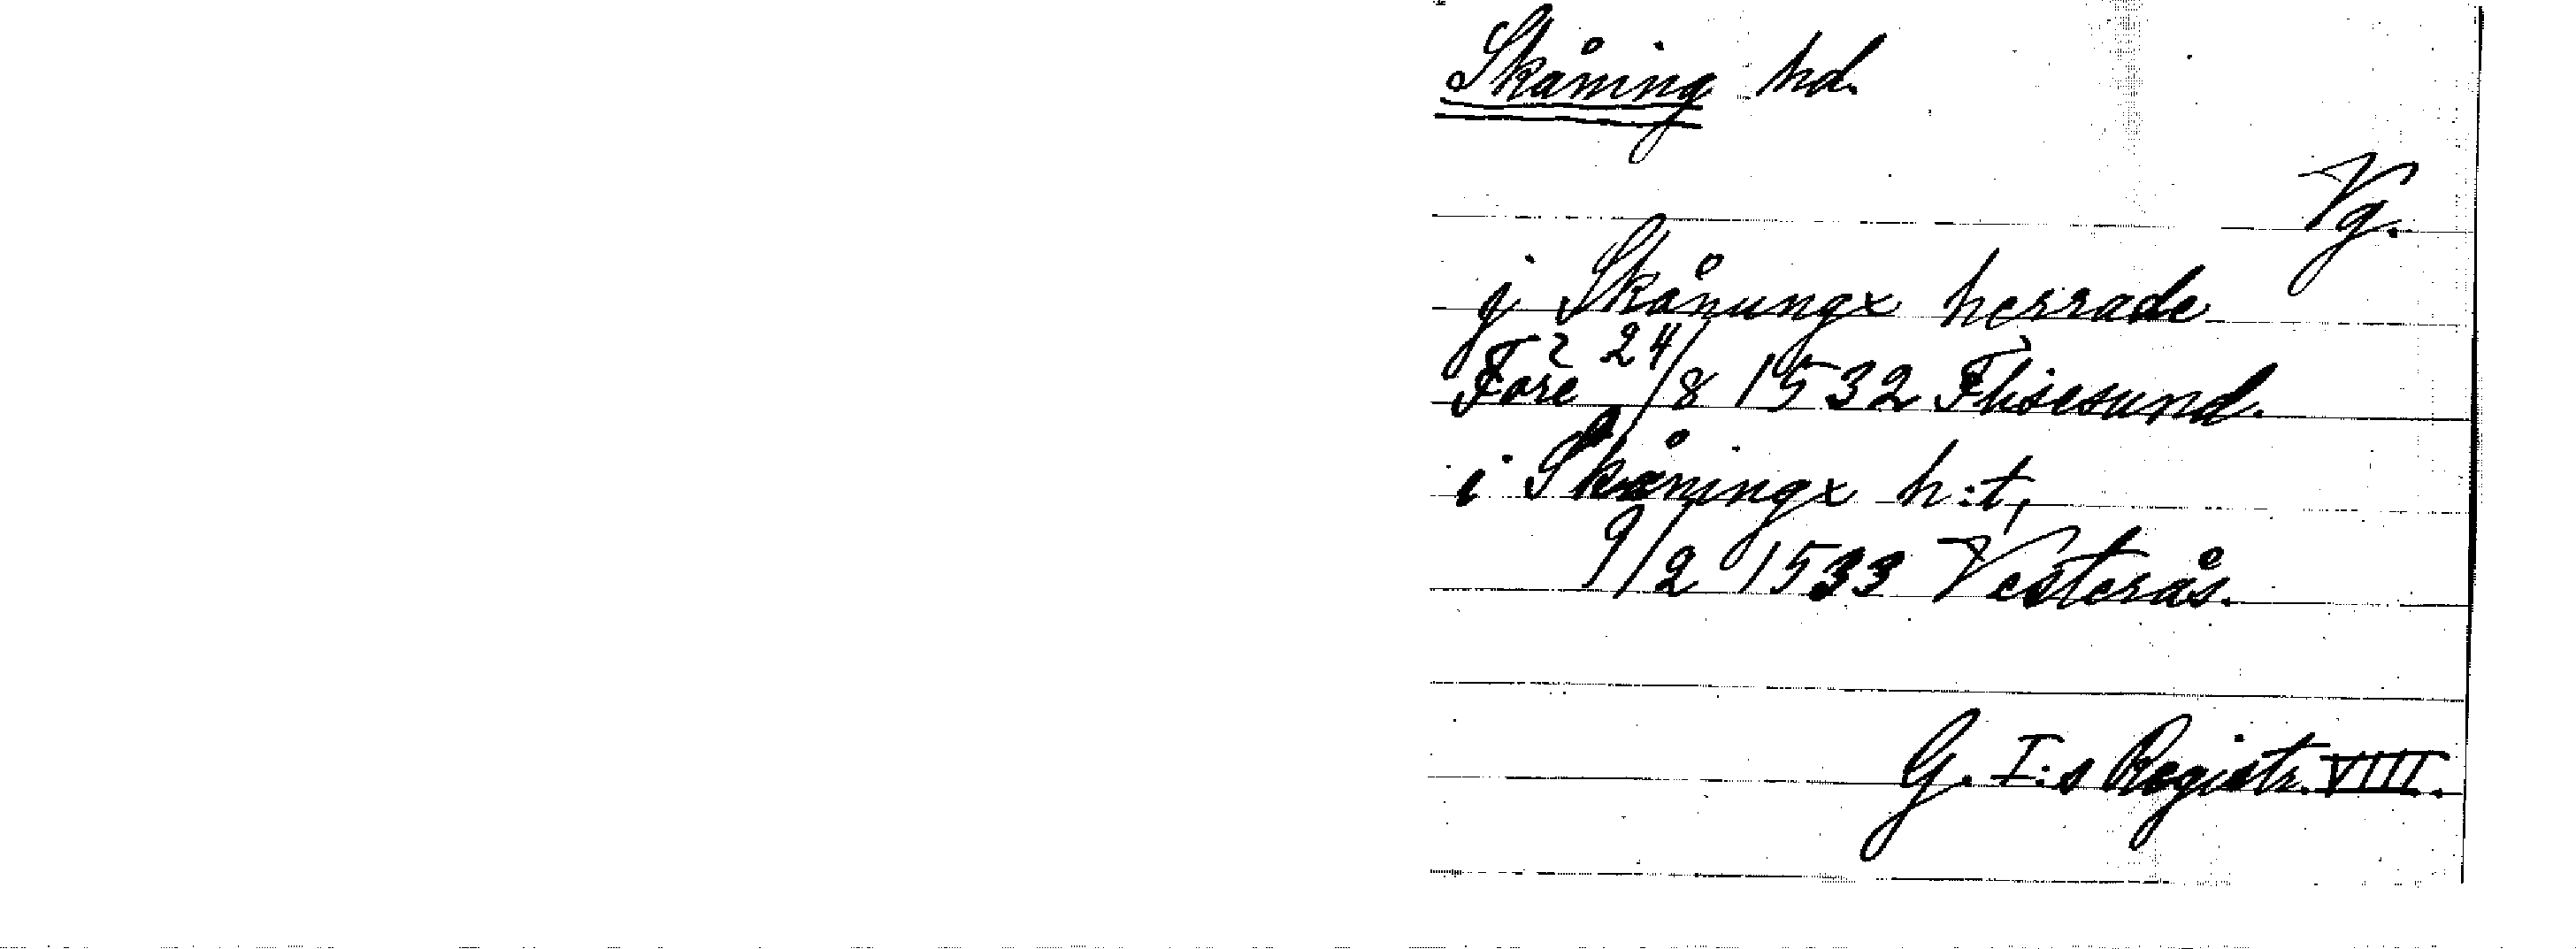 Skåning hd.
Vg.
j Skånungx herrade
Före 24/8 1532 Flisesund.
i Skåningx h:t,
9/2 1533 Vesterås.
G. I:s Registr. VIII.